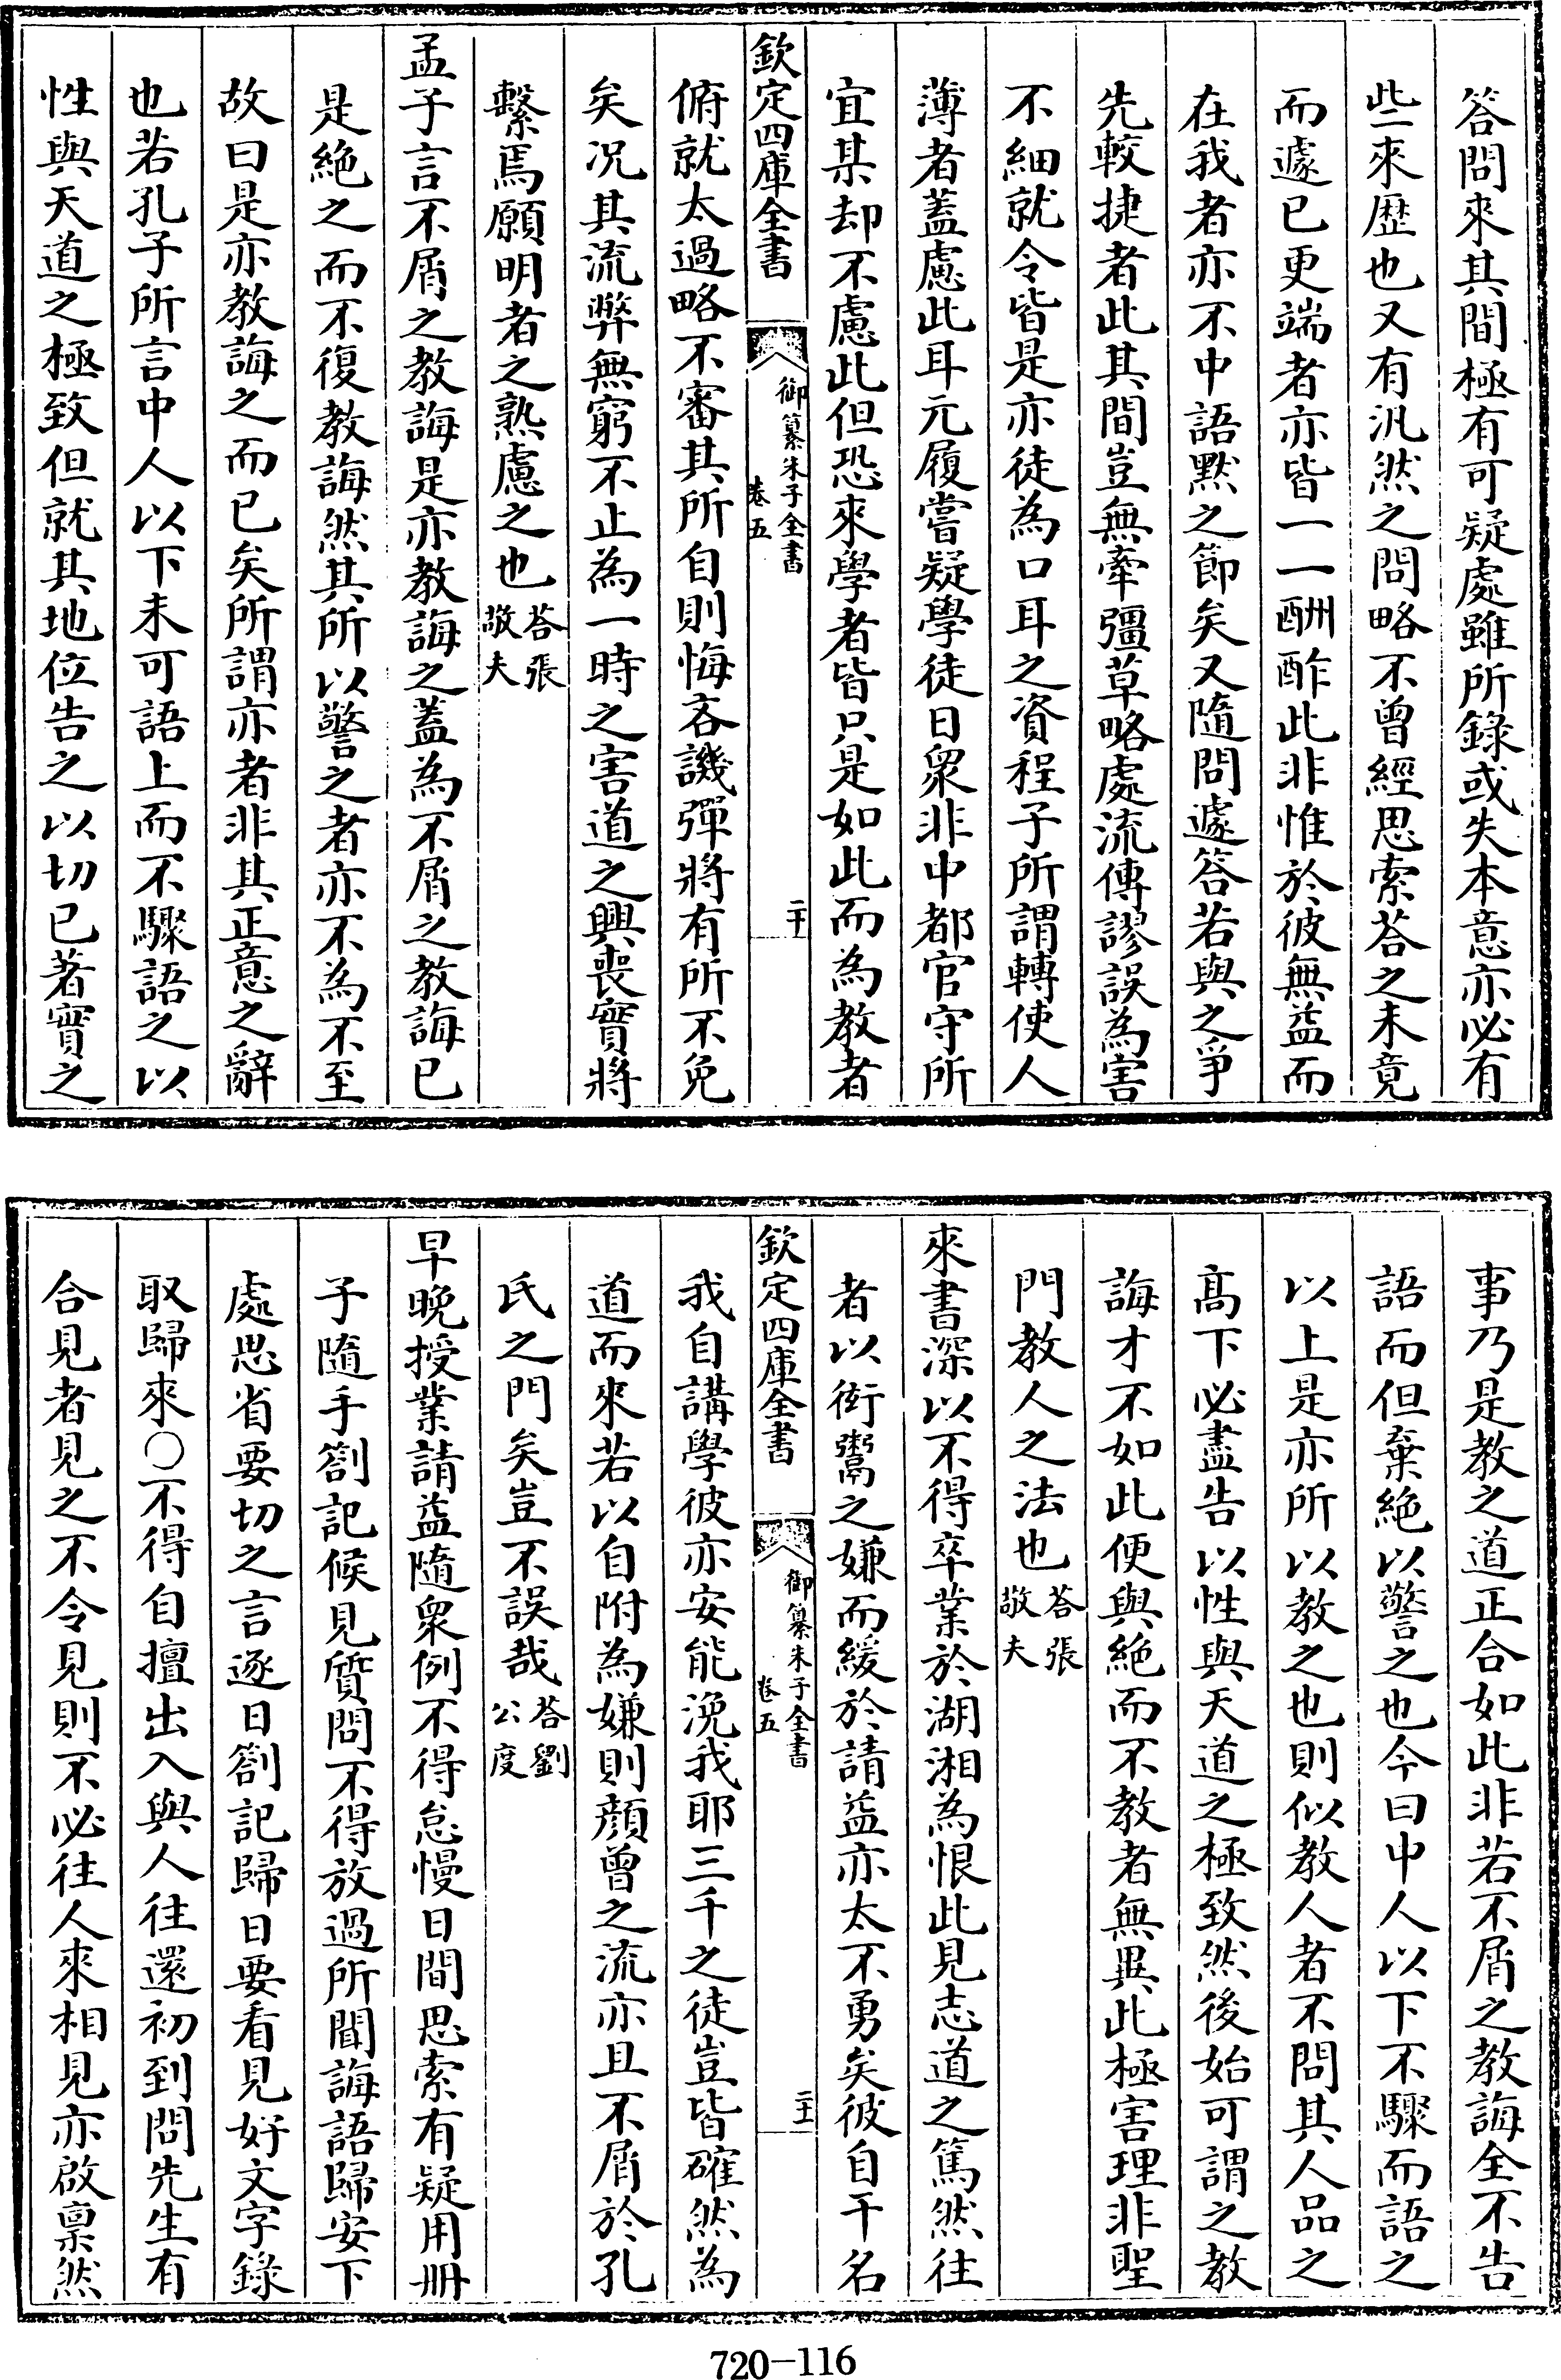 答問來其間極有可疑處雖所錄或失本意亦必有
些來歴也又有汎然之問略不曾經思索荅之未竟
而遽已更端者亦皆一一酬酢此非惟於彼無益而
在我者亦不中語默之節矣又隨問遽答若與之爭
先較捷者此其間豈無牽彊草略處流傳謬誤為害
不細就令皆是亦徒為口耳之資程子所謂轉使人
薄者蓋慮此耳元履嘗疑學徒日衆非中都官守所
宜某却不慮此但恐來學者皆只是如此而為教者
欽定四庫全書
御纂朱子全書
卷五
二十
俯就太過略不審其所自則悔吝譏彈將有所不免
矣况其流弊無窮不止為一時之害道之興喪實將
繫焉願明者之熟慮之也荅張敬夫
孟子言不屑之教誨是亦教誨之蓋為不屑之教誨已
是絶之而不復教誨然其所以警之者亦不為不至
故曰是亦教誨之而已矣所謂亦者非其正意之辭
也若孔子所言中人以下未可語上而不驟語之以
性與天道之極致但就其地位告之以切已著實之
事乃是教之道正合如此非若不屑之教誨全不告
語而但棄絶以警之也今曰中人以下不驟而語之
以上是亦所以教之也則似教人者不問其人品之
髙下必盡告以性與天道之極致然後始可謂之教
誨才不如此便與絶而不教者無異此極害理非聖
門教人之法也荅張敬夫
來書深以不得卒業於湖湘為恨此見志道之篤然往
者以衒鬻之嫌而緩於請益亦太不勇矣彼自干名
欽定四庫全書
御纂朱子全書
卷五
二十一
我自講學彼亦安能浼我耶三千之徒豈皆確然為
道而來若以自附為嫌則顔曾之流亦且不屑於孔
氏之門矣豈不誤哉荅劉公度
早晚授業請益隨衆例不得怠慢日間思索有疑用冊
子隨手劄記候見質問不得放過所聞誨語歸安下
處思省要切之言逐日劄記歸日要看見好文字錄
取歸來○不得自擅出入與人往還初到問先生有
合見者見之不令見則不必往人來相見亦啟禀然
720-116